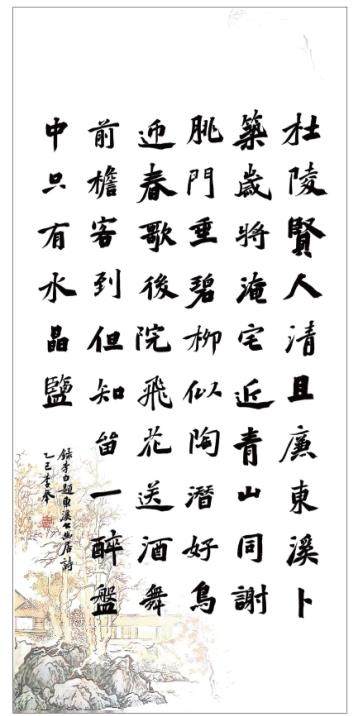 杜陵賢人清且廉東溪卜
築歲將淹宅近青山同謝
朓門垂碧柳似陶潛好鳥
迎春歌後院飛花送酒舞
前檐客到但知留一醉盤
中只有水晶鹽
錄李白題東溪公幽居詩
乙巳